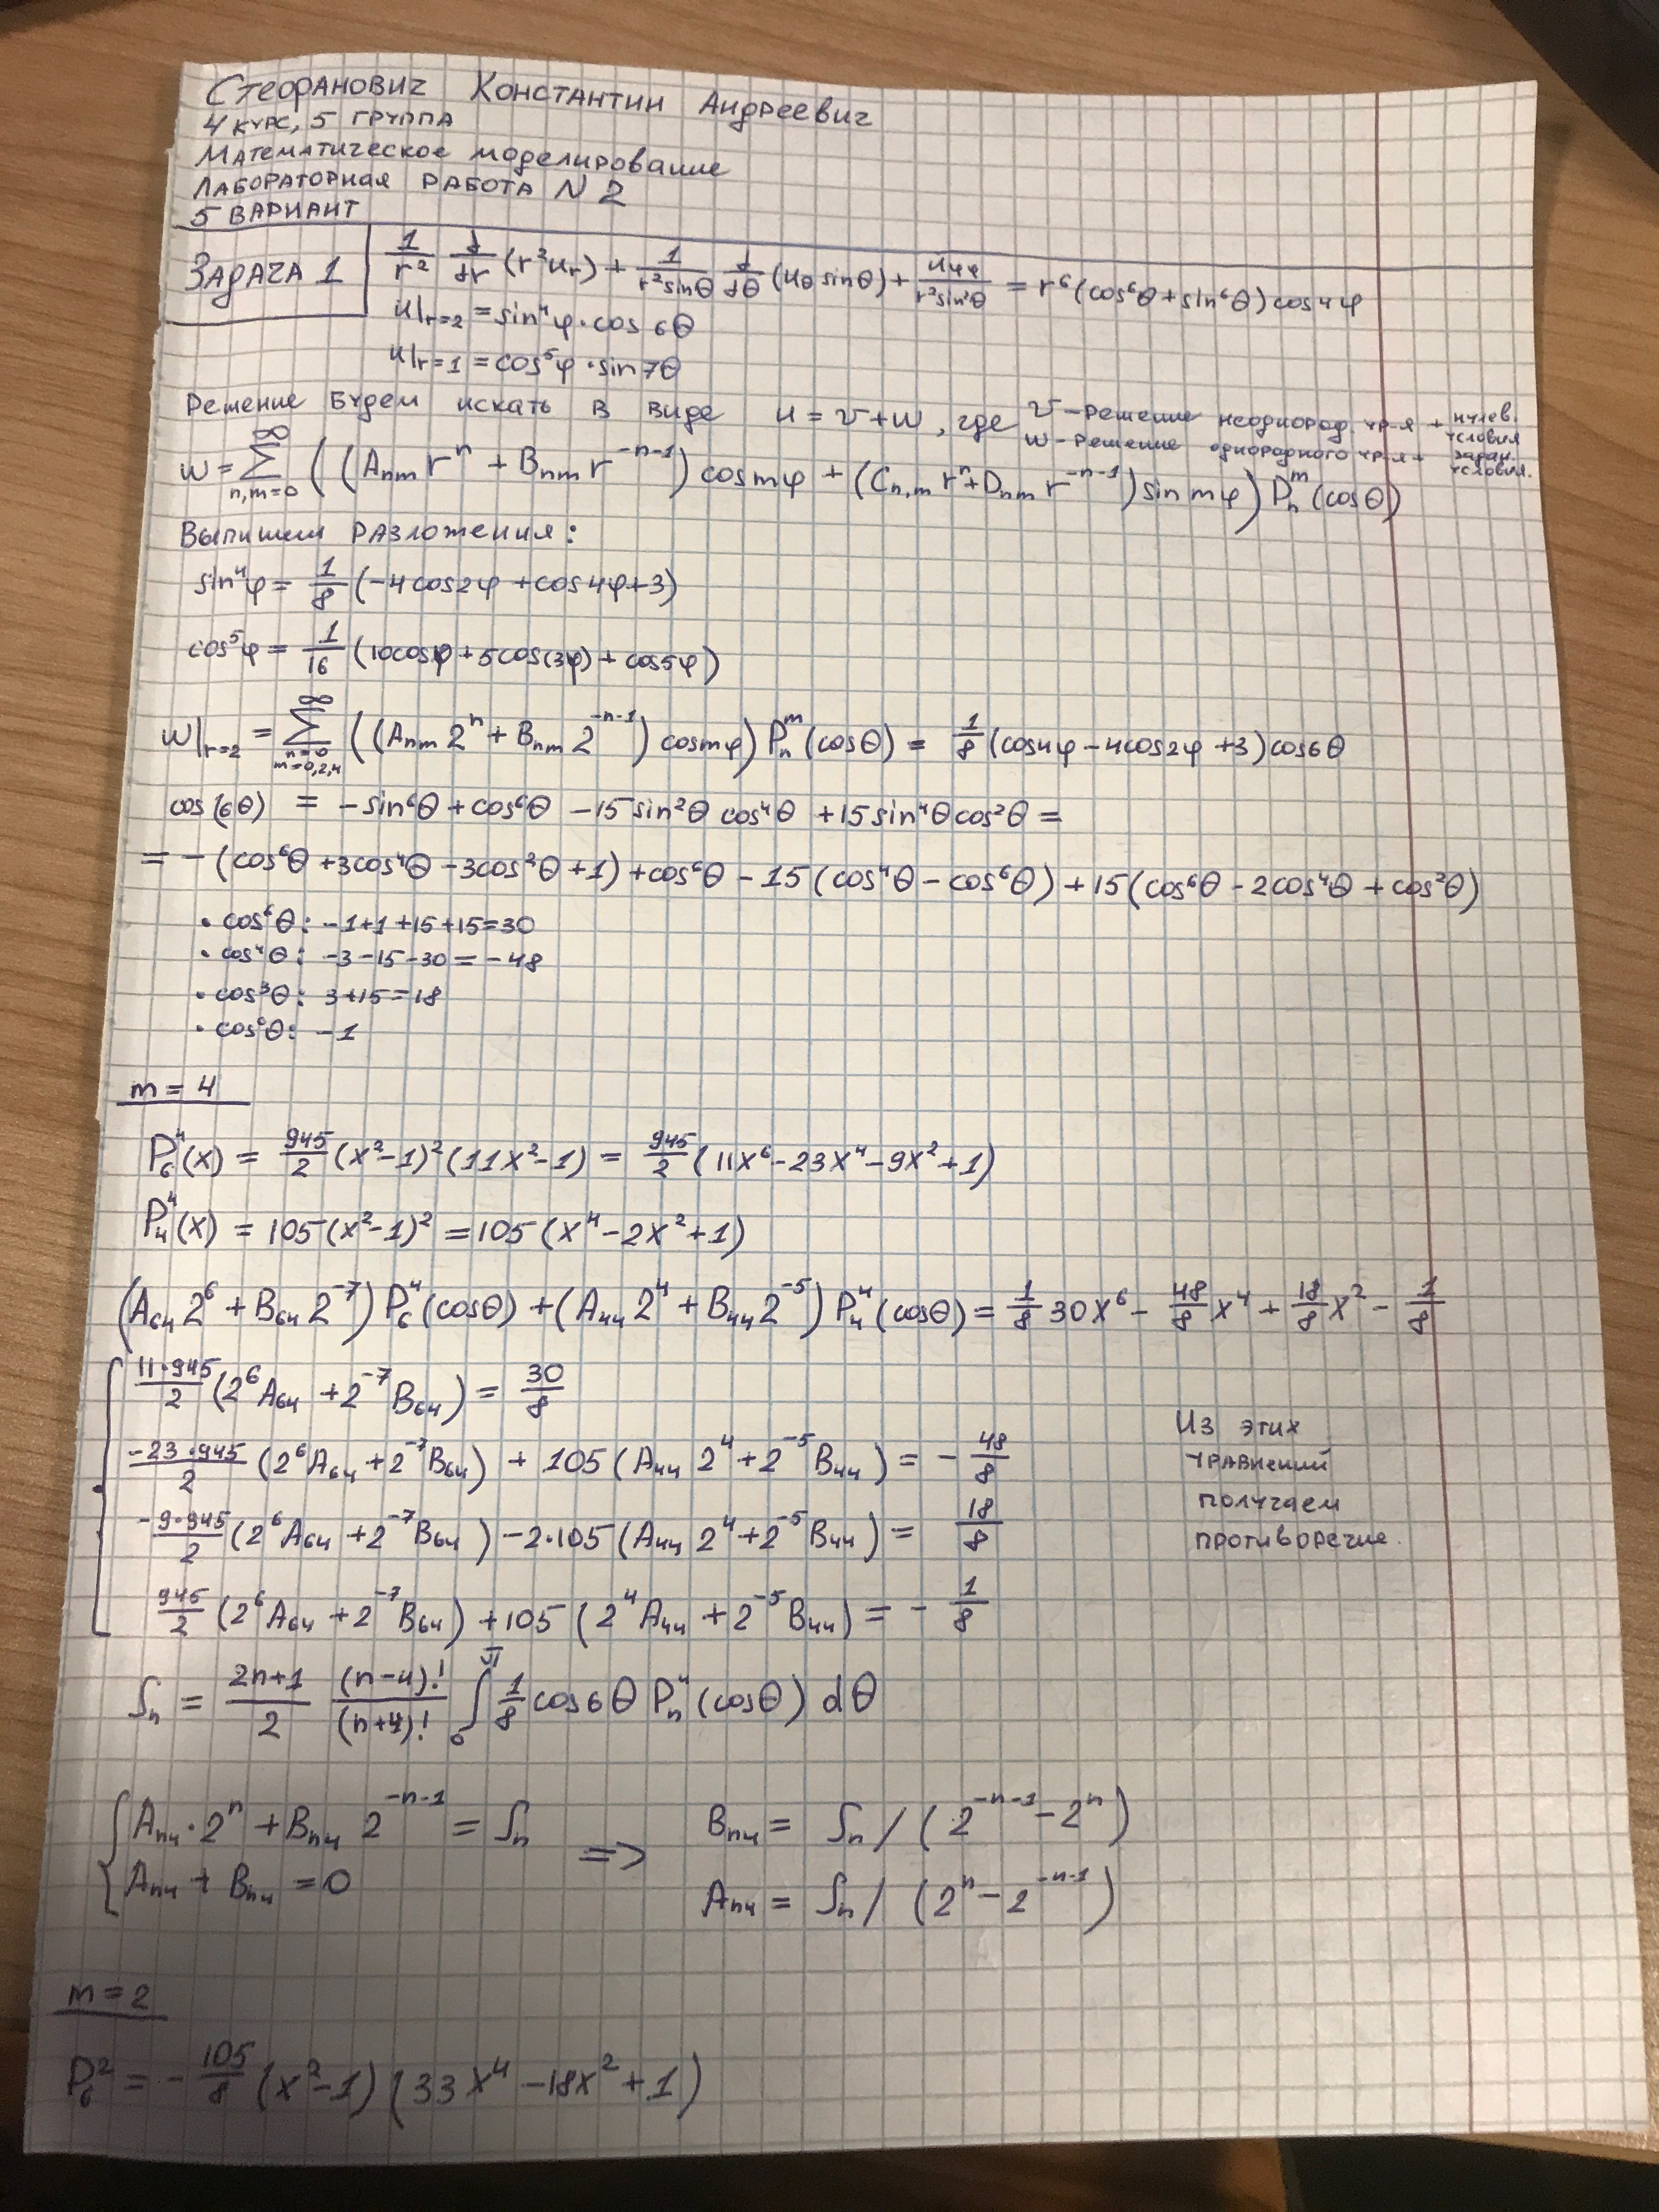 Стефанович Константин Андреевич
4 курс, 5 группа
Математическое моделирование
Лабораторная работа N 2
5 вариант
Задача 1
1/r² d/dr (r²u_r) + 1/(r² sinθ) d/dθ (u_θ sinθ) + u_φφ/(r² sin²θ) = r⁶(cos⁶θ + sin⁶θ) cos4φ
u|_{r=2} = sin⁴φ · cos 6θ
u|_{r=1} = cos⁵φ · sin 7θ
Решение будем искать в виде u = v + w, где v – решение неоднород. ур-я + нулев. условия
w – решение однородного ур-я + задан. условия.
w = ∑_{n,m=0}^{∞} ((A_{nm} r^n + B_{nm} r^{-n-1}) cos mφ + (C_{n,m} r^n + D_{nm} r^{-n-1}) sin mφ) P_n^m (cosθ)
Выпишем разложения:
sin⁴φ = 1/8 (-4cos2φ + cos4φ + 3)
cos⁵φ = 1/16 (10cosφ + 5cos(3φ) + cos5φ)
w|_{r=2} = ∑_{n=0, m=0,2,4}^{∞} ((A_{nm} 2^n + B_{nm} 2^{-n-1}) cos mφ) P_n^m (cosθ) = 1/8 (cos4φ - 4cos2φ + 3) cos6θ
cos(6θ) = -sin⁶θ + cos⁶θ - 15 sin²θ cos⁴θ + 15 sin⁴θ cos²θ =
= -(cos⁶θ + 3cos⁴θ - 3cos²θ + 1) + cos⁶θ - 15 (cos⁴θ - cos⁶θ) + 15 (cos⁶θ - 2cos⁴θ + cos²θ)
• cos⁶θ: -1+1+15+15=30
• cos⁴θ: -3-15-30 = -48
• cos³θ: 3+15=18
• cos⁰θ: -1
m = 4
P_6^4(x) = 945/2 (x²-1)² (11x²-1) = 945/2 (11x⁶ - 23x⁴ - 9x² + 1)
P_4^4(x) = 105 (x²-1)² = 105 (x⁴ - 2x² + 1)
(A_{64} 2^6 + B_{64} 2^{-7}) P_6^4 (cosθ) + (A_{44} 2^4 + B_{44} 2^{-5}) P_4^4 (cosθ) = 1/8 30x⁶ - 48/8 x⁴ + 18/8 x² - 1/8
11·945/2 (2^6 A_{64} + 2^{-7} B_{64}) = 30/8
-23·945/2 (2^6 A_{64} + 2^{-7} B_{64}) + 105 (A_{44} 2^4 + 2^{-5} B_{44}) = -48/8
-9·945/2 (2^6 A_{64} + 2^{-7} B_{64}) - 2·105 (A_{44} 2^4 + 2^{-5} B_{44}) = 18/8
945/2 (2^6 A_{64} + 2^{-7} B_{64}) + 105 (2^4 A_{44} + 2^{-5} B_{44}) = -1/8
Из этих
уравнений
получаем
противоречие.
S_n = (2n+1)/2 (n-4)!/(n+4)! ∫_0^π 1/8 cos6θ P_n^4 (cosθ) dθ
A_{n4} · 2^n + B_{n4} 2^{-n-1} = S_n => B_{n4} = S_n / (2^{-n-1} - 2^n)
A_{n4} + B_{n4} = 0 A_{n4} = S_n / (2^n - 2^{-n-1})
m = 2
P_6^2 = -105/8 (x²-1) (33x⁴ - 18x² + 1)